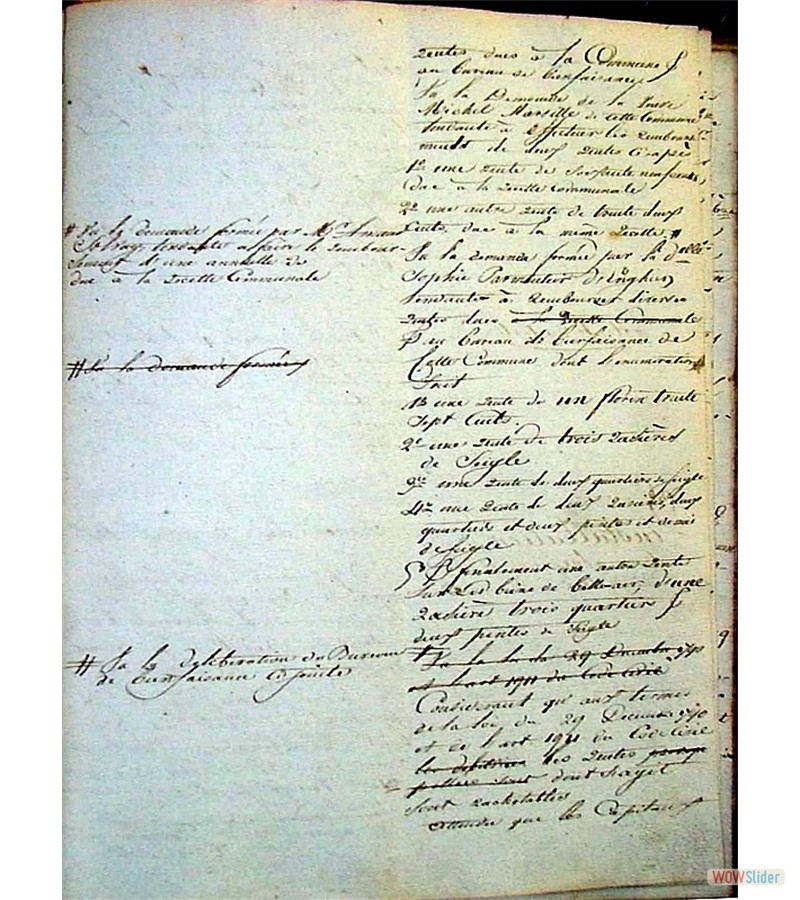 rentes dues à la Commune &
au bureau de bienfaisance
Vu la Demande de la Veuve
Michel de cette Commune
tendante à effectuer les rembourse-
ments de deux rentes ci-après
1° une rente de soixante neuf cents,
due à la recette communale
2° une autre rente de trente deux
Cents, due à la même recette #
# Vu la demande formée par Mr
tendante à faire le rembour-
sement d'une annuelle de
due à la recette Communale
Vu la demande formée par la dlle
Sophie Parmentier d'Enghien
tendante à rembourser diverses
rentes dues à la Recette Communale
& au bureau de bienfaisance de
Cette Commune dont l'énumération
Suit
# Vu la demande formée
1° une rente de un florin trente
Sept Cents.
2° une rente de trois rasières
de Seigle
3° une rente de deux quartiers de seigle
4° une rente de deux rasières, deux
quartiers et deux pintes et demie
de seigle
5° & finalement une autre rente
sur les biens de Belle-air, d'une
rasière trois quartiers &
deux pintes de Seigle
# Vu la délibération du Bureau
de bienfaisance ci jointe
Vu la loi du 29 Décembre 1790
et l'art 1911 du Code Civil
Considérant qu'aux termes
de la loi du 29 Décembre 1790
et de l'art 1911 du Code Civil
les débitrices les rentes
dont s'agit
sont rachetables
attendu que les Capitaux
WOWSlider